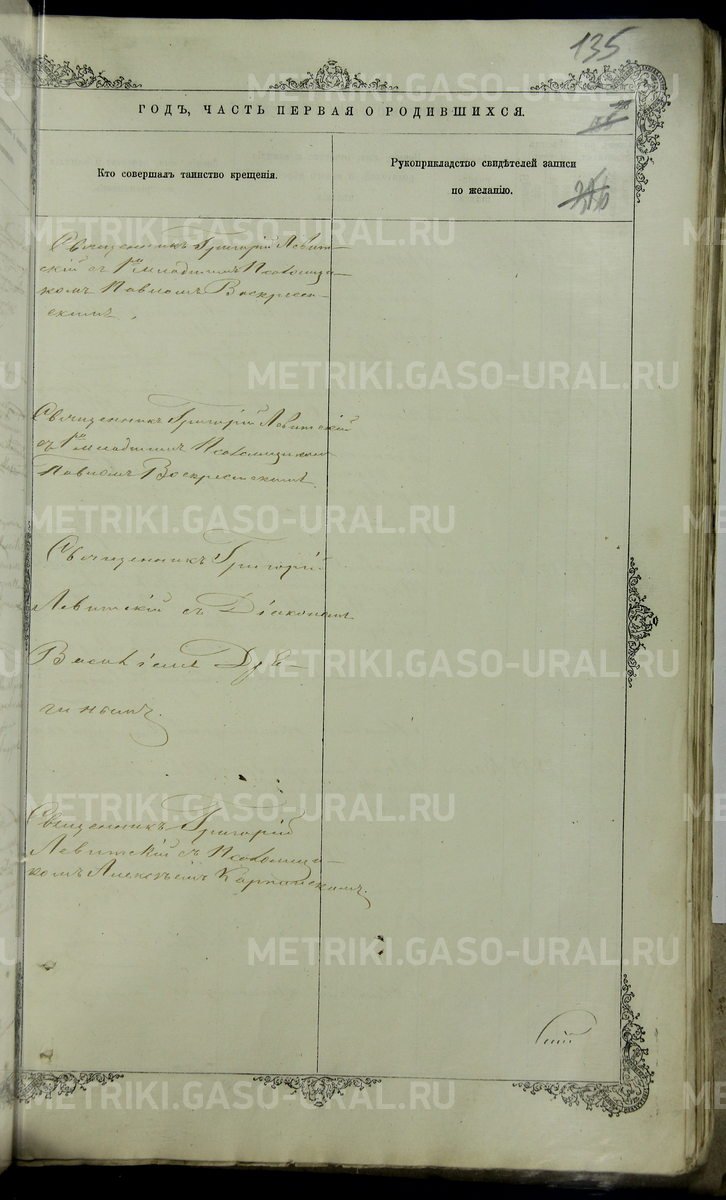 135
ГОДЪ, ЧАСТЬ ПЕРВАЯ О РОДИВШИХСЯ.
Кто совершалъ таинство крещенія.
Рукоприкладство свидѣтелей записи
по желанію.
Священникъ Григорій Левит-
скій съ 1мъ младшимъ Псаломщи-
комъ Павломъ Воскресен-
скимъ.
Священникъ Григорій Левитскій
съ 1мъ младшимъ Псаломщикомъ
Павломъ Воскресенскимъ.
Священникъ Григорій
Левитскій съ Діакономъ
Василіемъ
Священникъ Григорій
Левитскій съ Псаломщи-
комъ Алексѣемъ Карпинскимъ.
METRIKI.GASO-URAL.RU